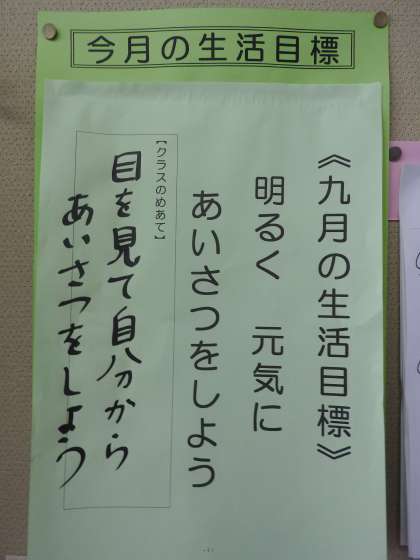 今月の生活目標
《九月の生活目標》
明るく　元気に
あいさつをしよう
【クラスのめあて】
目を見て自分から
あいさつをしよう